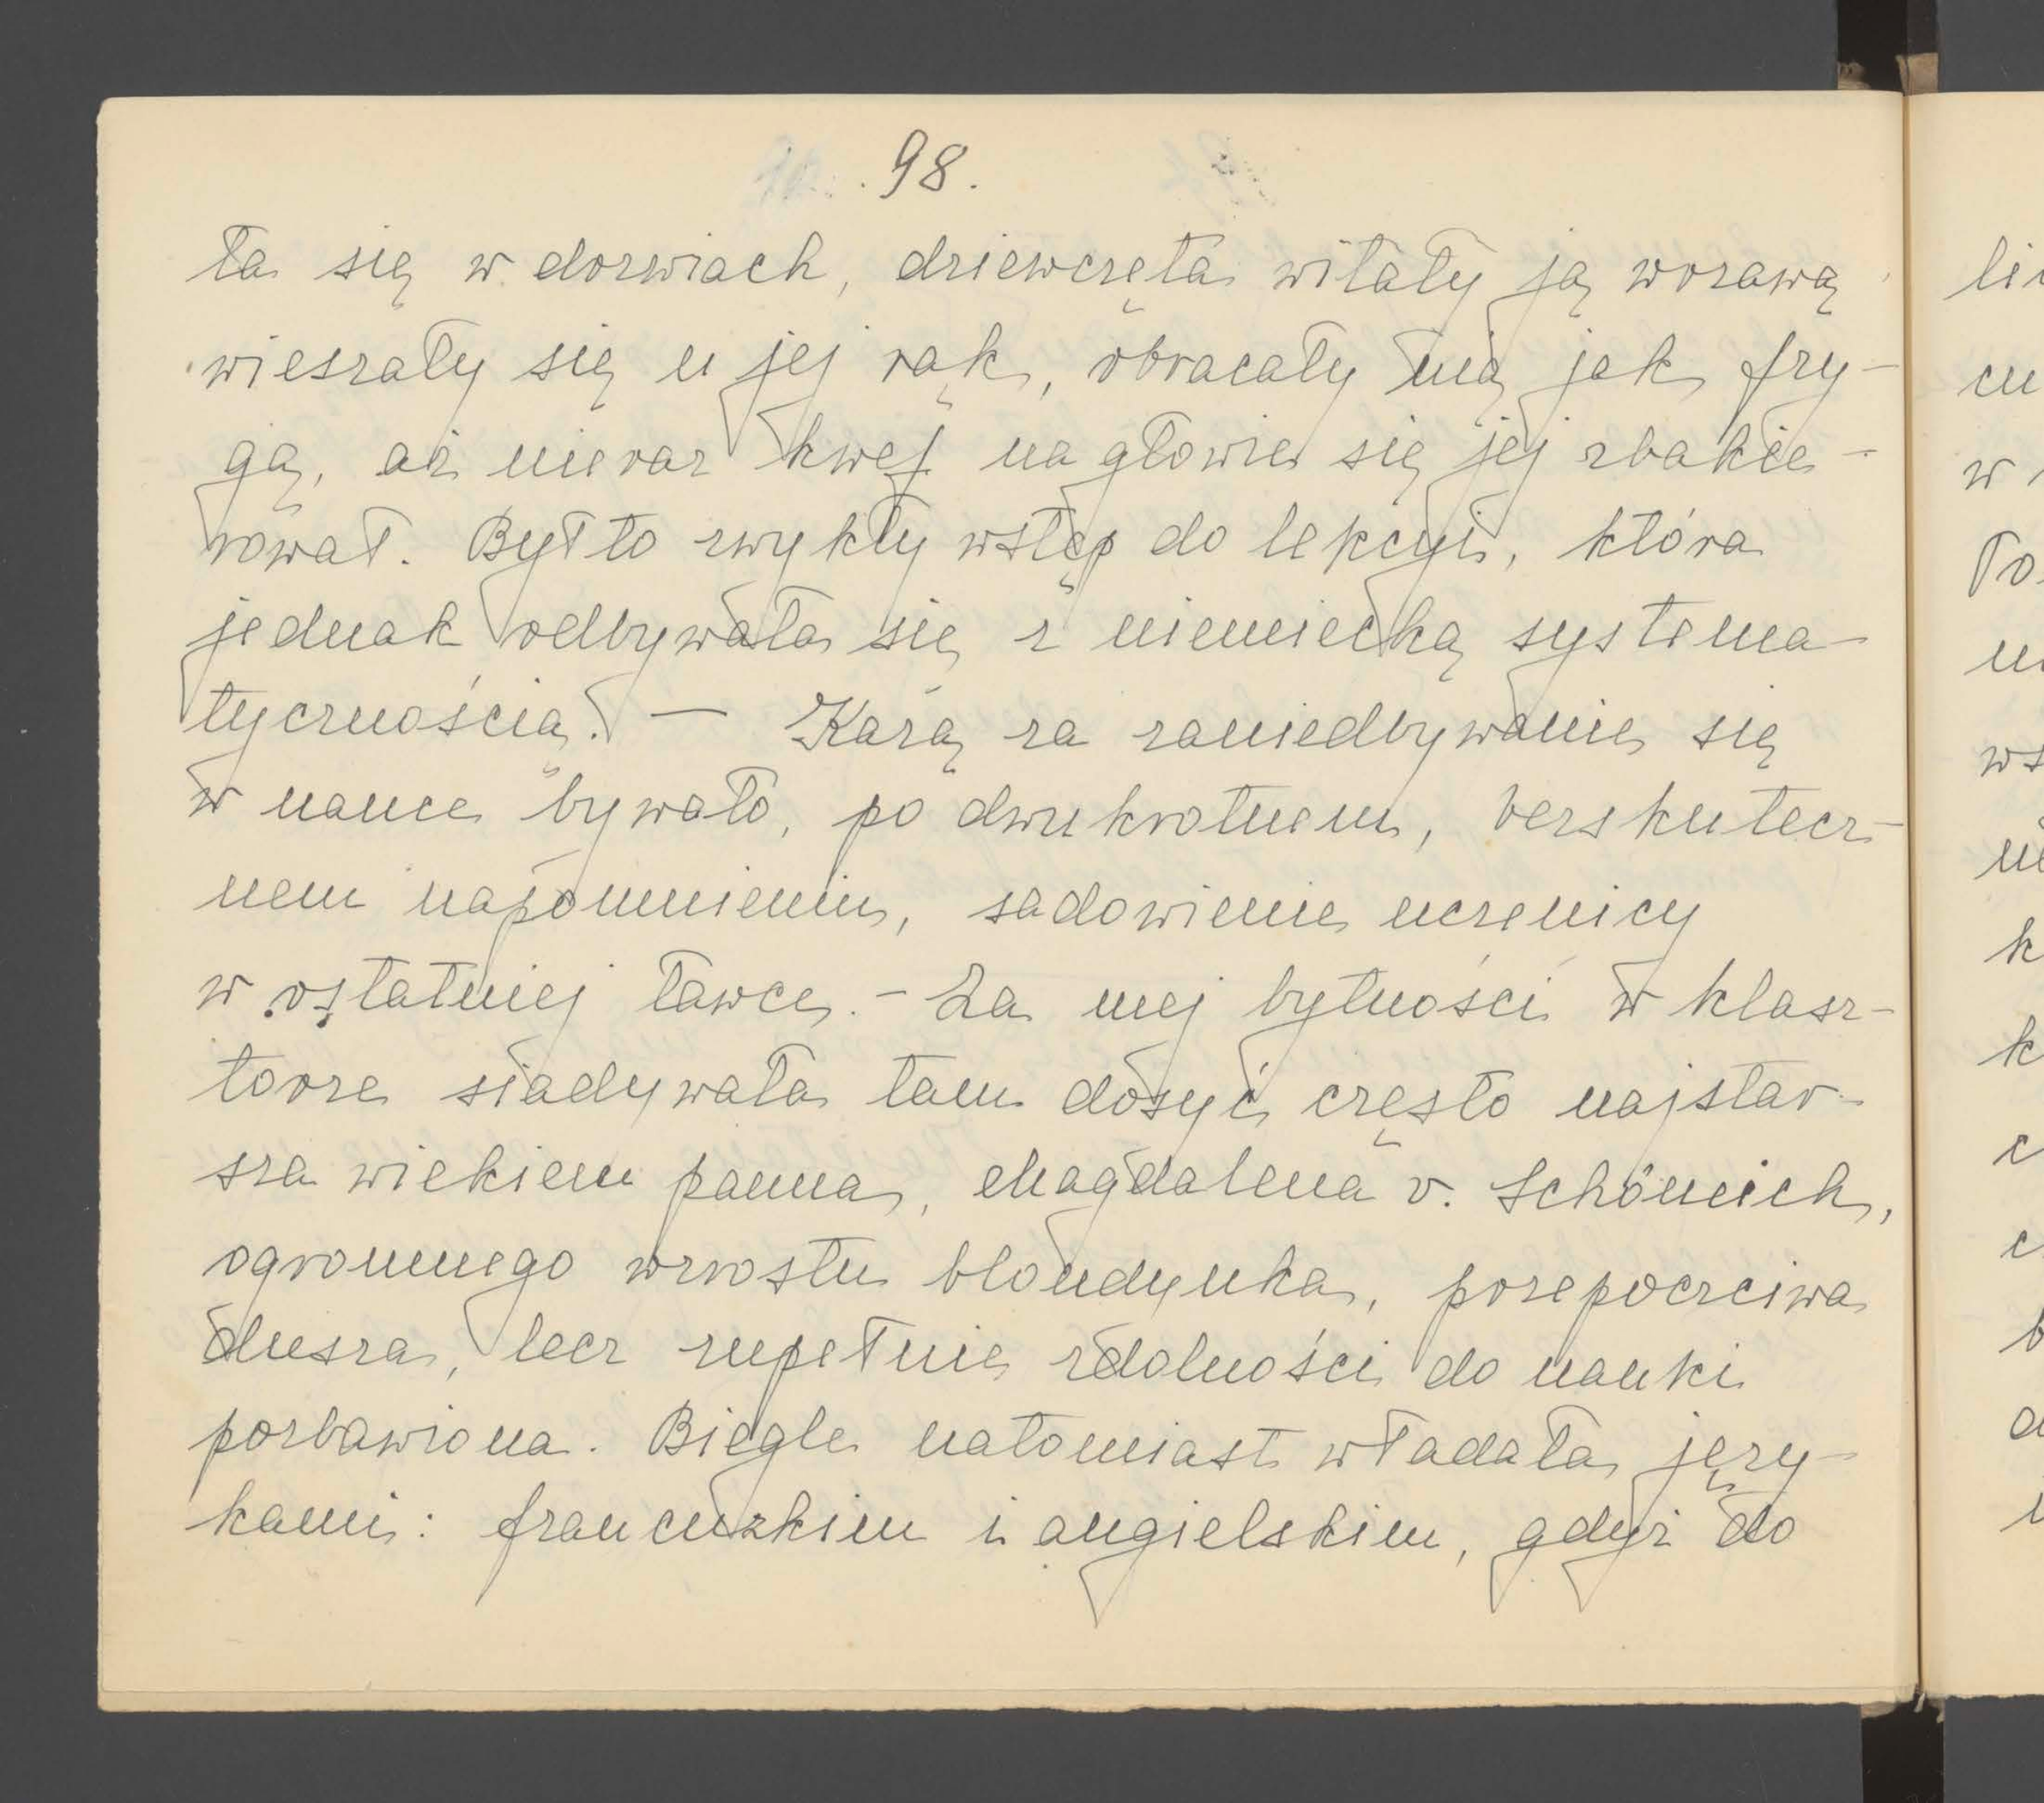 98.
ła się w dorwiach, dziewczęta witały ją wrzawą
wieszały się u jej rąk, obracały nią jak fry-
gą, aż nieraz kwef na głowie się jej zbakie-
rował. Był to zwykły wstęp do lekcyi, która
jednak odbywała się z niemiecką systema-
tycznością. — Karą za zaniedbywanie się
w nauce bywało, po dwukrotnem, bezskutecz-
nem napomnieniu, sadowienie uczenicy
w ostatniej ławce. - Za mej bytności w klasz-
torze siadywała tam dosyć często najstar-
sza wiekiem panna, Magdalena v. Schöneich,
ogromnego wzrostu blondynka, przepoczciwa
dusza, lecz zupełnie zdolności do nauki
pozbawiona. Biegle natomiast władała języ-
kami: francuzkim i angielskim, gdyż do